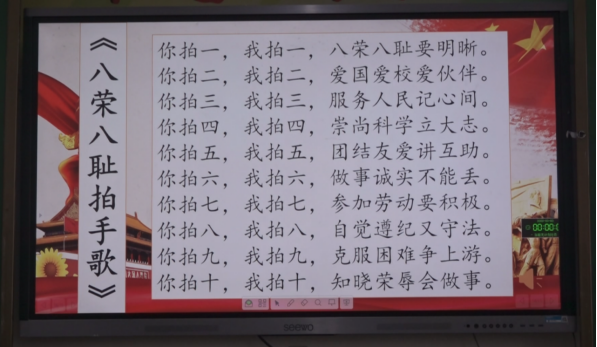 《八荣八耻拍手歌》
你拍一，我拍一，八荣八耻要明晰。
你拍二，我拍二，爱国爱校爱伙伴。
你拍三，我拍三，服务人民记心间。
你拍四，我拍四，崇尚科学立大志。
你拍五，我拍五，团结友爱讲互助。
你拍六，我拍六，做事诚实不能丢。
你拍七，我拍七，参加劳动要积极。
你拍八，我拍八，自觉遵纪又守法。
你拍九，我拍九，克服困难争上游。
你拍十，我拍十，知晓荣辱会做事。
00:00:0
seewo